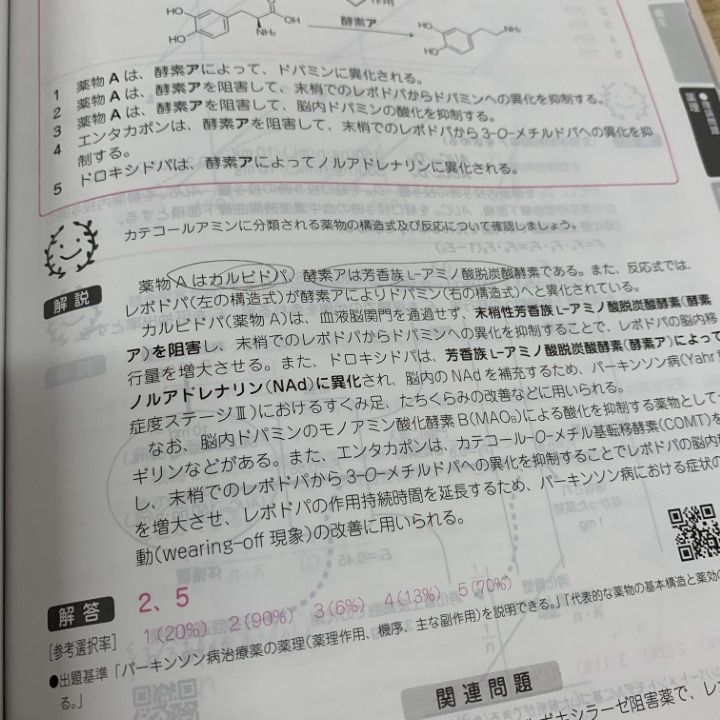 HO
HO
OH
NH₂
酵素ア
HO
HO
NH₂
1 薬物Aは、酵素アによって、ドパミンに異化される。
2 薬物Aは、酵素アを阻害して、末梢でのレボドパからドパミンへの異化を抑制する。
3 薬物Aは、酵素アを阻害して、脳内ドパミンの酸化を抑制する。
4 エンタカポンは、酵素アを阻害して、末梢でのレボドパから3-O-メチルドパへの異化を抑
制する。
5 ドロキシドパは、酵素アによってノルアドレナリンに異化される。
カテコールアミンに分類される薬物の構造式及び反応について確認しましょう。
解説
薬物Aはカルビドパ、酵素アは芳香族L-アミノ酸脱炭酸酵素である。また、反応式では、
レボドパ(左の構造式)が酵素アによりドパミン(右の構造式)へと異化されている。
カルビドパ(薬物A)は、血液脳関門を通過せず、末梢性芳香族L-アミノ酸脱炭酸酵素(酵素
ア)を阻害し、末梢でのレボドパからドパミンへの異化を抑制することで、レボドパの脳内移
行量を増大させる。また、ドロキシドパは、芳香族L-アミノ酸脱炭酸酵素(酵素ア)によって
ノルアドレナリン(NAd)に異化され、脳内のNAdを補充するため、パーキンソン病(Yahr
症度ステージⅢ)におけるすくみ足、たちくらみの改善などに用いられる。
なお、脳内ドパミンのモノアミン酸化酵素B(MAO_B)による酸化を抑制する薬物として
ギリンなどがある。また、エンタカポンは、カテコール-O-メチル基転移酵素(COMT)を
し、末梢でのレボドパから3-O-メチルドパへの異化を抑制することでレボドパの脳内
を増大させ、レボドパの作用持続時間を延長するため、パーキンソン病における症状の
動(wearing-off現象)の改善に用いられる。
解答
2、5
[参考選択率] 1(20%) 2(90%) 3(6%) 4(13%) 5(70%)
●出題基準「パーキンソン病治療薬の薬理(薬理作用、機序、主な副作用)を説明できる。」「代表的な薬物の基本構造と薬効の
る。」
関連問題
キシラーゼ阻害薬で、レ